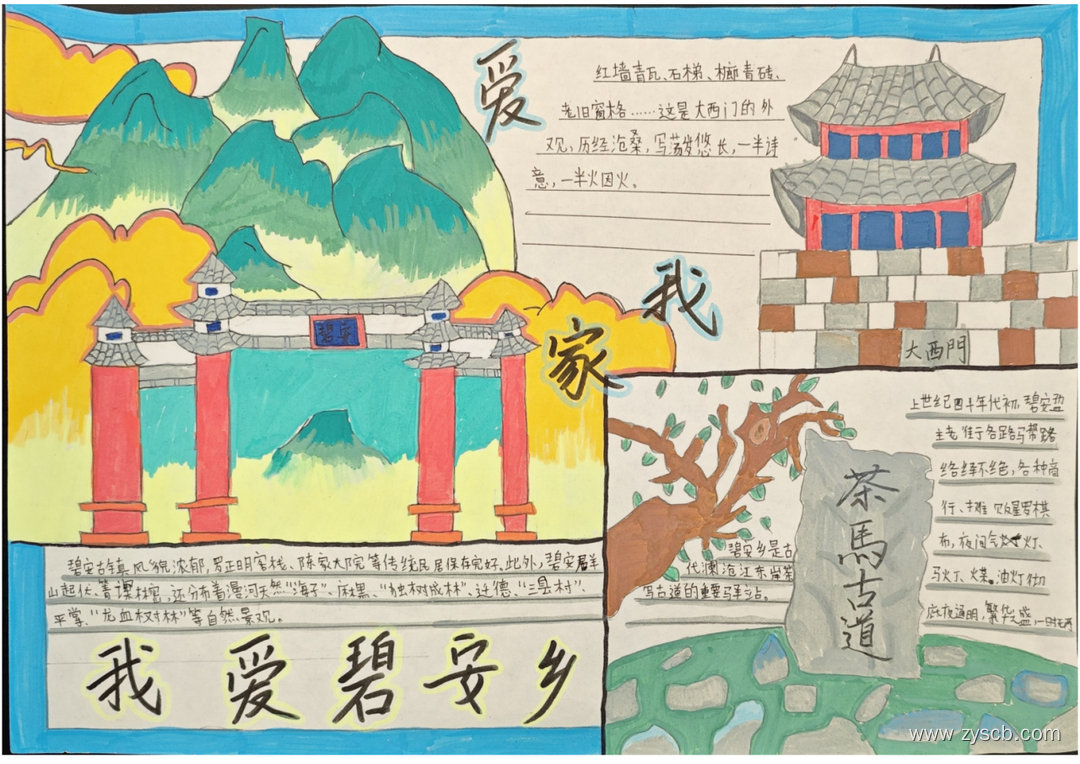 爱
我
家
红墙青瓦、石梯、木廊青砖、
老旧窗格……这是大西门的外
观，历经沧桑，写满岁悠长，一半诗
意，一半火因火。
大西門
碧安
上世纪四十年代初，碧安盐
主老街于各路马帮路
络绎不绝，各种商
行、摊贩星罗棋
布，夜间气灯、
马火丁、煤。油灯彻
底夜通明，繁华盛
茶馬古道
碧安乡是古
代澜沧江东岸茶
写古道的重要马羊站。
碧安古镇风貌浓郁，罗正明客栈、陈家大院等传统民居保存完好。此外，碧安群羊
山起伏、等梁村官，还分布着漫河天然“海子”、麻黑、“独树成林”、迁德、“三县村”、
平掌、“龙血树林”等自然景观。
我爱碧安乡
www.zyscb.com